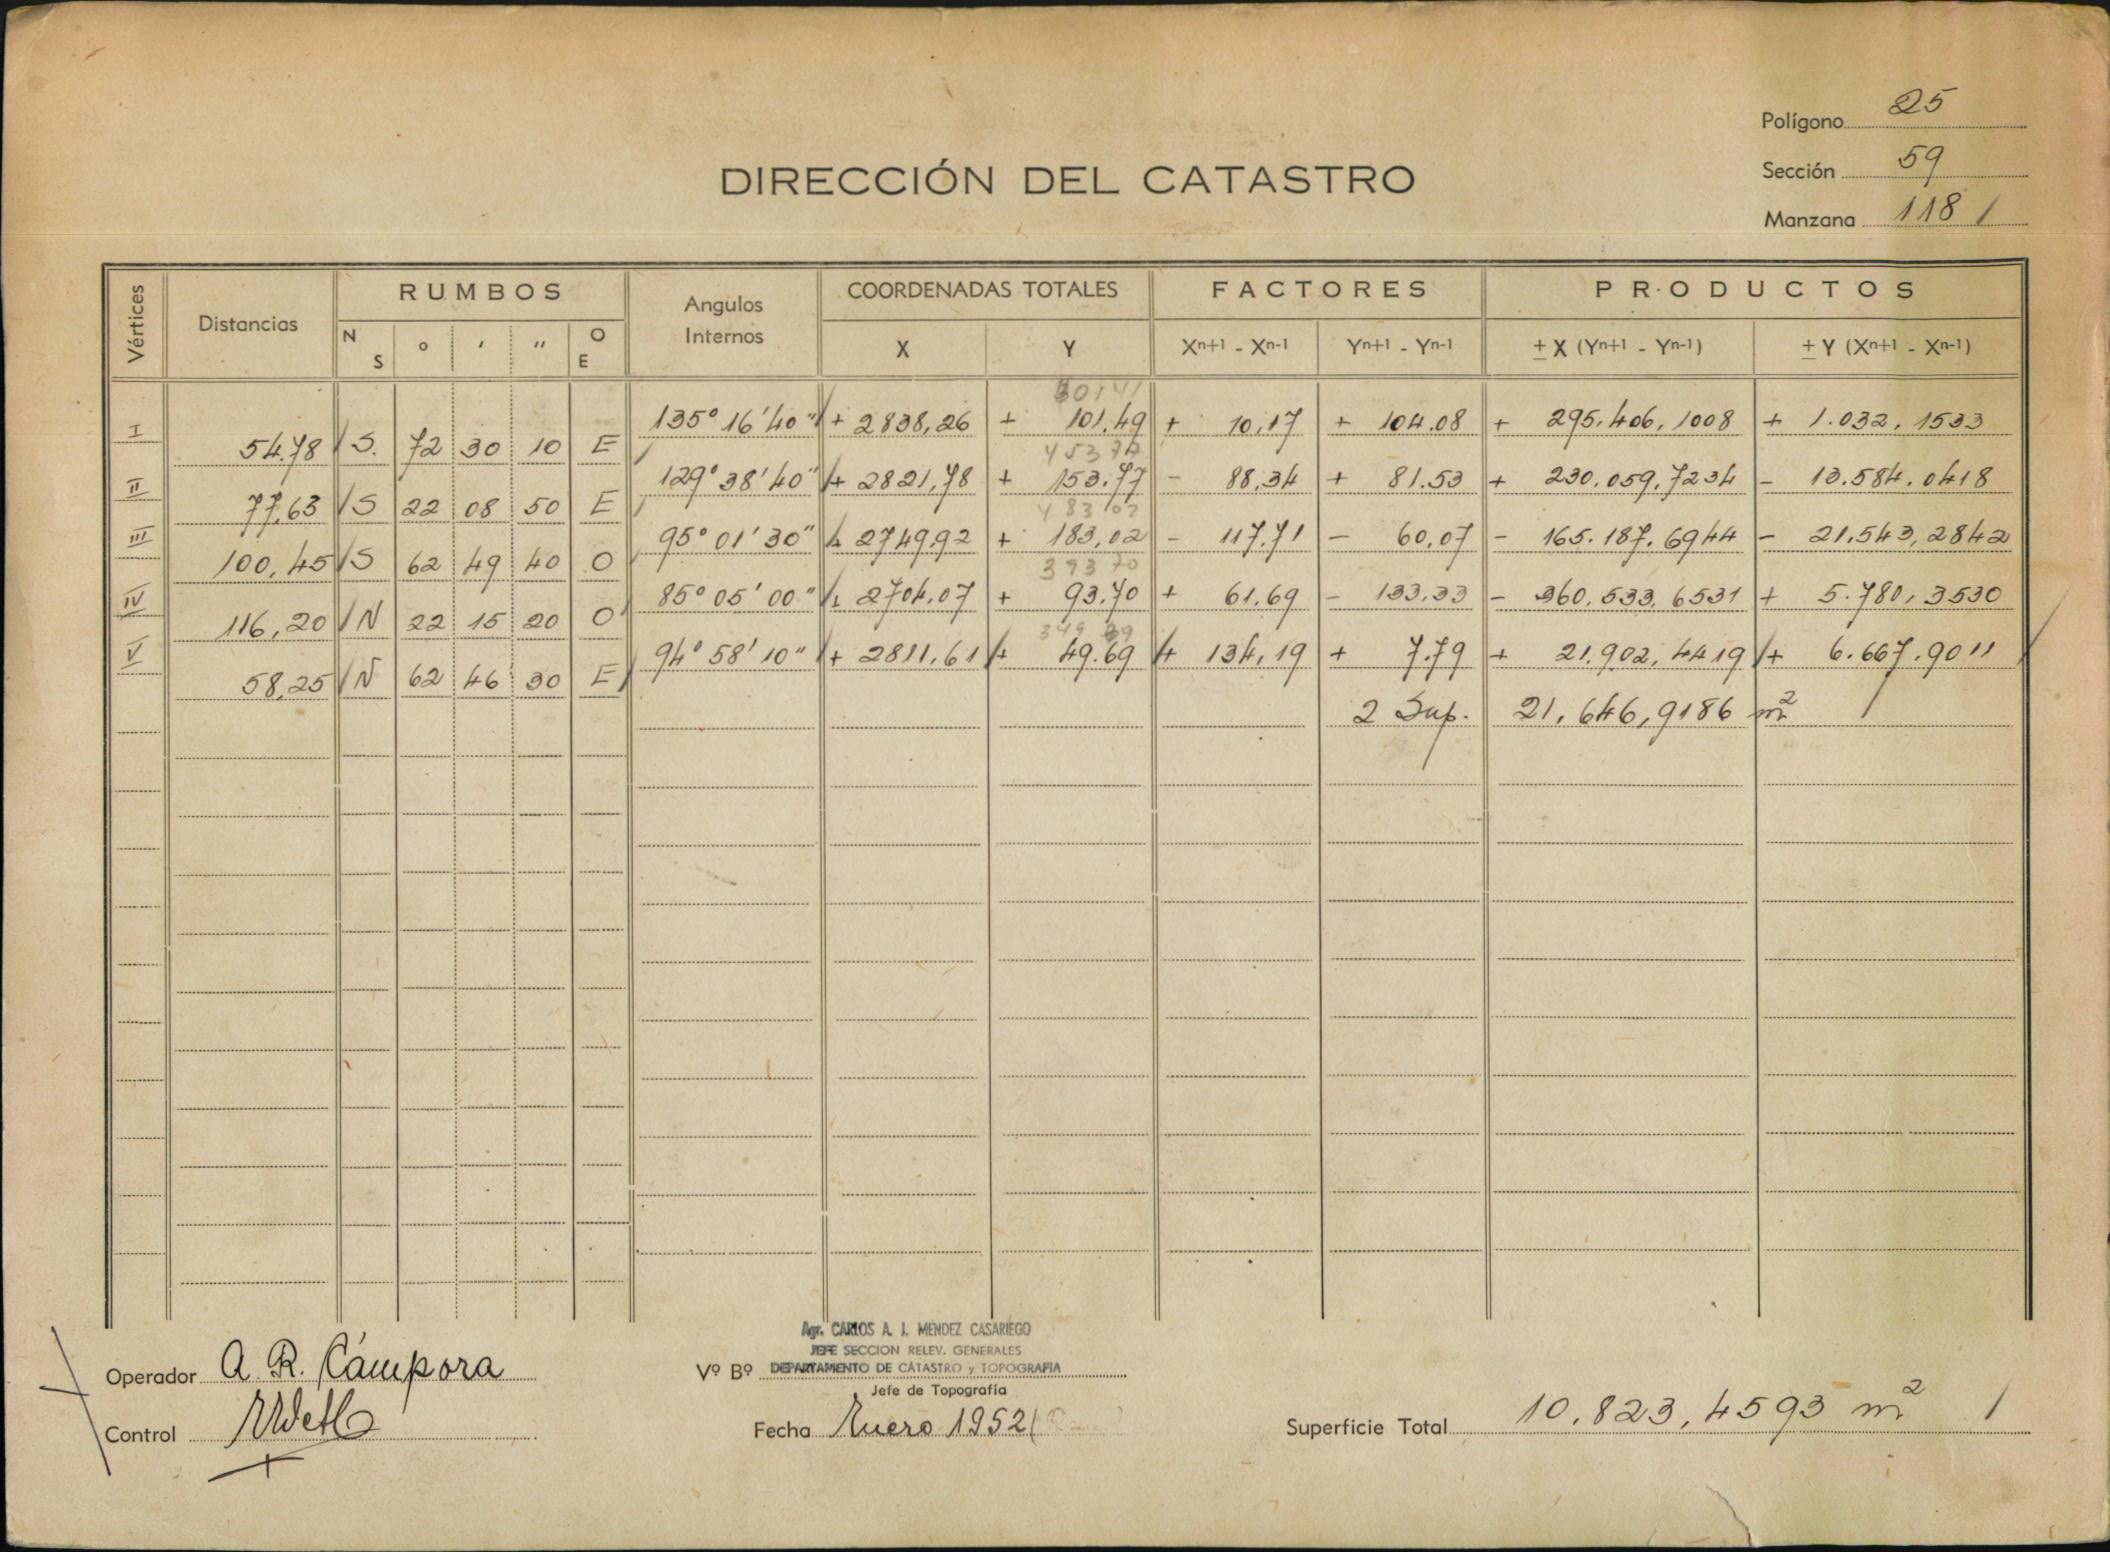 Polígono 25
DIRECCIÓN DEL CATASTRO
Sección 59
Manzana 118 /
Vértices Distancias RUMBOS N S ° ' " O E Angulos Internos COORDENADAS TOTALES X Y FACTORES Xn+1 - Xn-1 Yn+1 - Yn-1 PRODUCTOS ± X (Yn+1 - Yn-1) ± Y (Xn+1 - Xn-1)
I 135° 16' 40" + 2838,26 + 101.49 + 10,17 + 104.08 + 295.406,1008 + 1.032,1533
54.78 S. 72 30 10 E
II 129° 38' 40" + 2821,78 + 153.77 - 88,34 + 81.53 + 230.059,7234 - 13.584.0418
77,63 S 22 08 50 E 48302
III 95° 01' 30" + 2749,92 + 183,02 - 117.71 - 60,07 - 165.187.6944 - 21.543,2842
100,45 S 62 49 40 O 39370
IV 85° 05' 00" + 2704.07 + 93.70 + 61.69 - 133,33 - 360.533,6531 + 5.780,3530
116,20 N 22 15 20 O
V 94° 58' 10" + 2811.61 + 49.69 + 134,19 + 7.79 + 21.902,4419 + 6.667.9011
58,25 N 62 46 30 E
2 Sup. 21.646,9186 m²
Agr. CARLOS A. I. MENDEZ CASARIEGO
JEFE SECCION RELEV. GENERALES
Operador A. R. Cámpora Vº Bº DEPARTAMENTO DE CATASTRO y TOPOGRAFIA
Jefe de Topografía
Control Fecha Enero 1952 Superficie Total 10.823,4593 m² /